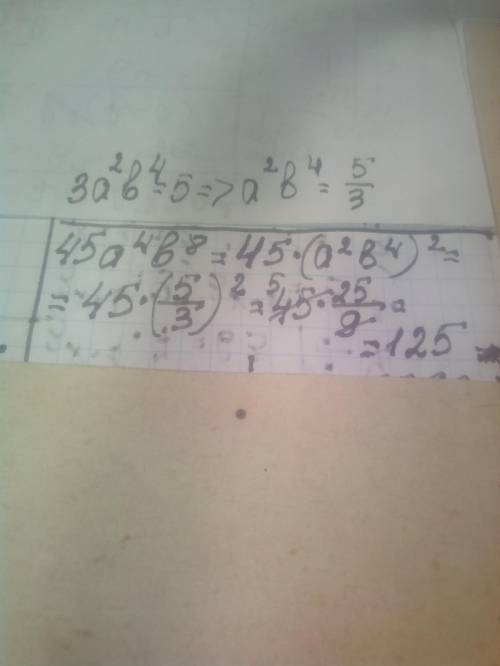 3a²b⁴=5=>a²b⁴=5/3
45a⁴b⁸=45·(a²b⁴)²=
=45·(5/3)²=⁵45·25/9=
=125